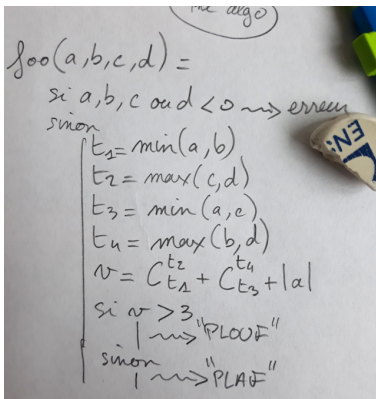 the algo)
foo(a,b,c,d) =
si a,b,c ou d < 0 ⇝ erreur
sinon
t₁ = min(a,b)
t₂ = max(c,d)
t₃ = min(a,c)
t₄ = max(b,d)
v = C_{t₁}^{t₂} + C_{t₃}^{t₄} + |a|
si v > 3
⇝ "PLOUF"
sinon
⇝ "PLAF"
EN: